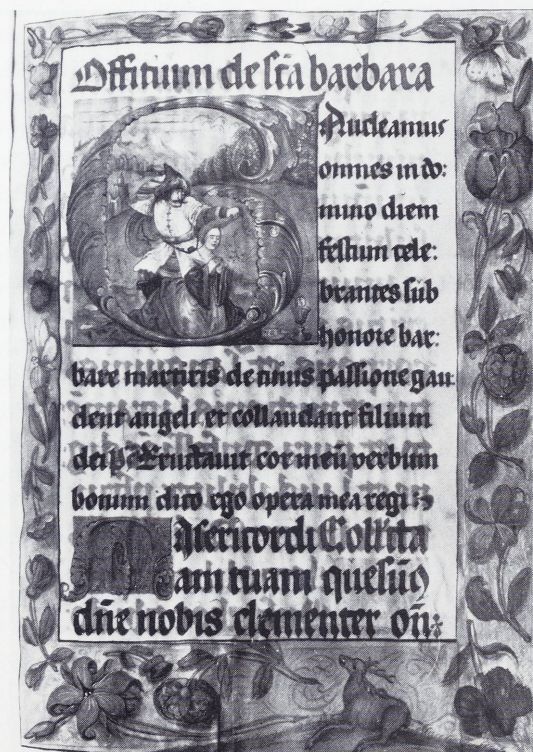 Offitium de sc̃a barbara
Gaudeamus
omnes in do:
mino diem
festum cele:
brantes sub
honore bar:
bare martiris de cuius passione gau:
dent angeli et collaudant filium
dei p̃s Eructavit cor meũ verbum
bonum dico ego opera mea regi :
Misericordi Coll̃ta
am tuam quesum9
dñe nobis clementer on̄: